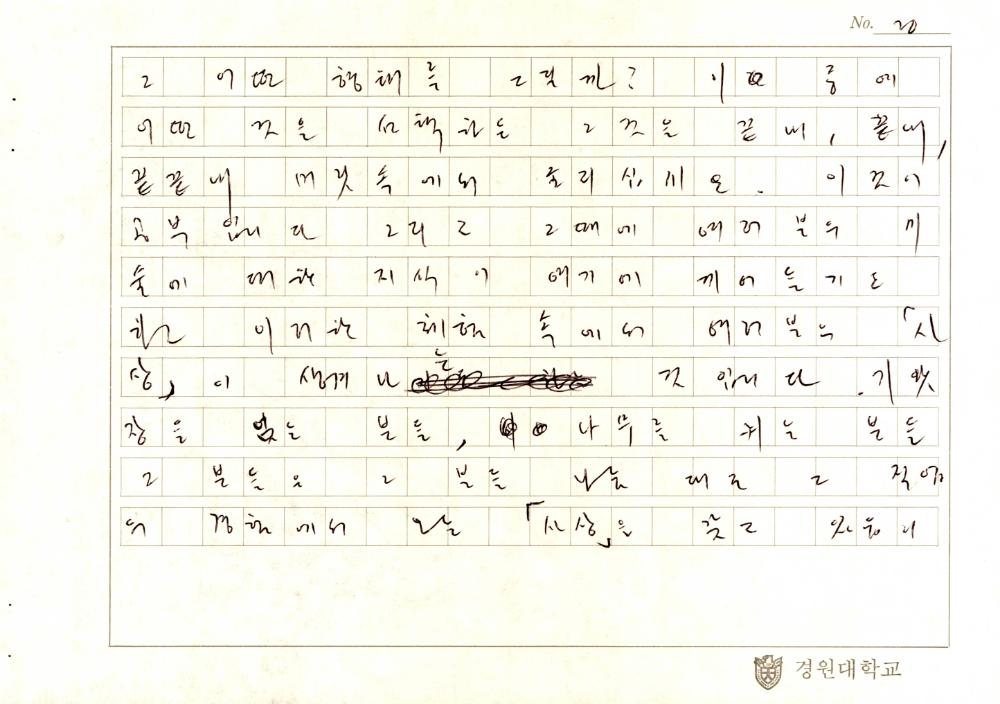 No. 20
그 어떤 형태를 그릴까? 이 중에
어떤 것을 선택하는 그것을 끝내, 끝내,
끝끝내 머릿속에서 돌리십시오. 이것이
공부입니다 그리고 그때에 여러분의 기
술에 대한 지식이 얘기에 끼어들기도
하고 이러한 체험 속에서 여러분는 「사
상」이 생겨나는 것입니다. 기왓
장을 엎는 분들, 나무를 켜는 분들
그 분들은 그 분들 나름대로 그 직업
의 경험에서 오는 「사상」을 갖고 있읍니
경원대학교